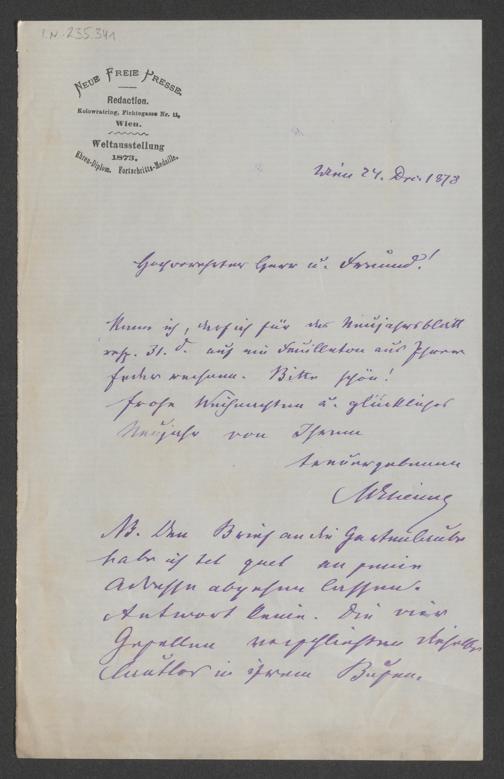 I.N. 235.341
NEUE FREIE PRESSE.
Redaction.
Kolowratring, Fichtegasse Nr. 11,
Wien.
Weltausstellung
1873,
Ehren-Diplom. Fortschritts-Medaille.
Wien 24. Dec. 1873
Hochverehrter Herr u. Freund!
Kann ich, darf ich für das Neujahrsblatt
resp. 31. d. auf ein Feuilleton aus Ihrer
Feder rechnen. Bitte schön!
Frohe Weihnachten u. glückliches
Neujahr von Ihrem
treuergebenen
NB. Den Brief an die Gartenlaube
habe ich gut an
Adresse abgehen lassen.
Antwort keine. Die vier
Gesellen verschließen dieselbe
lautlos in ihrem Busen.